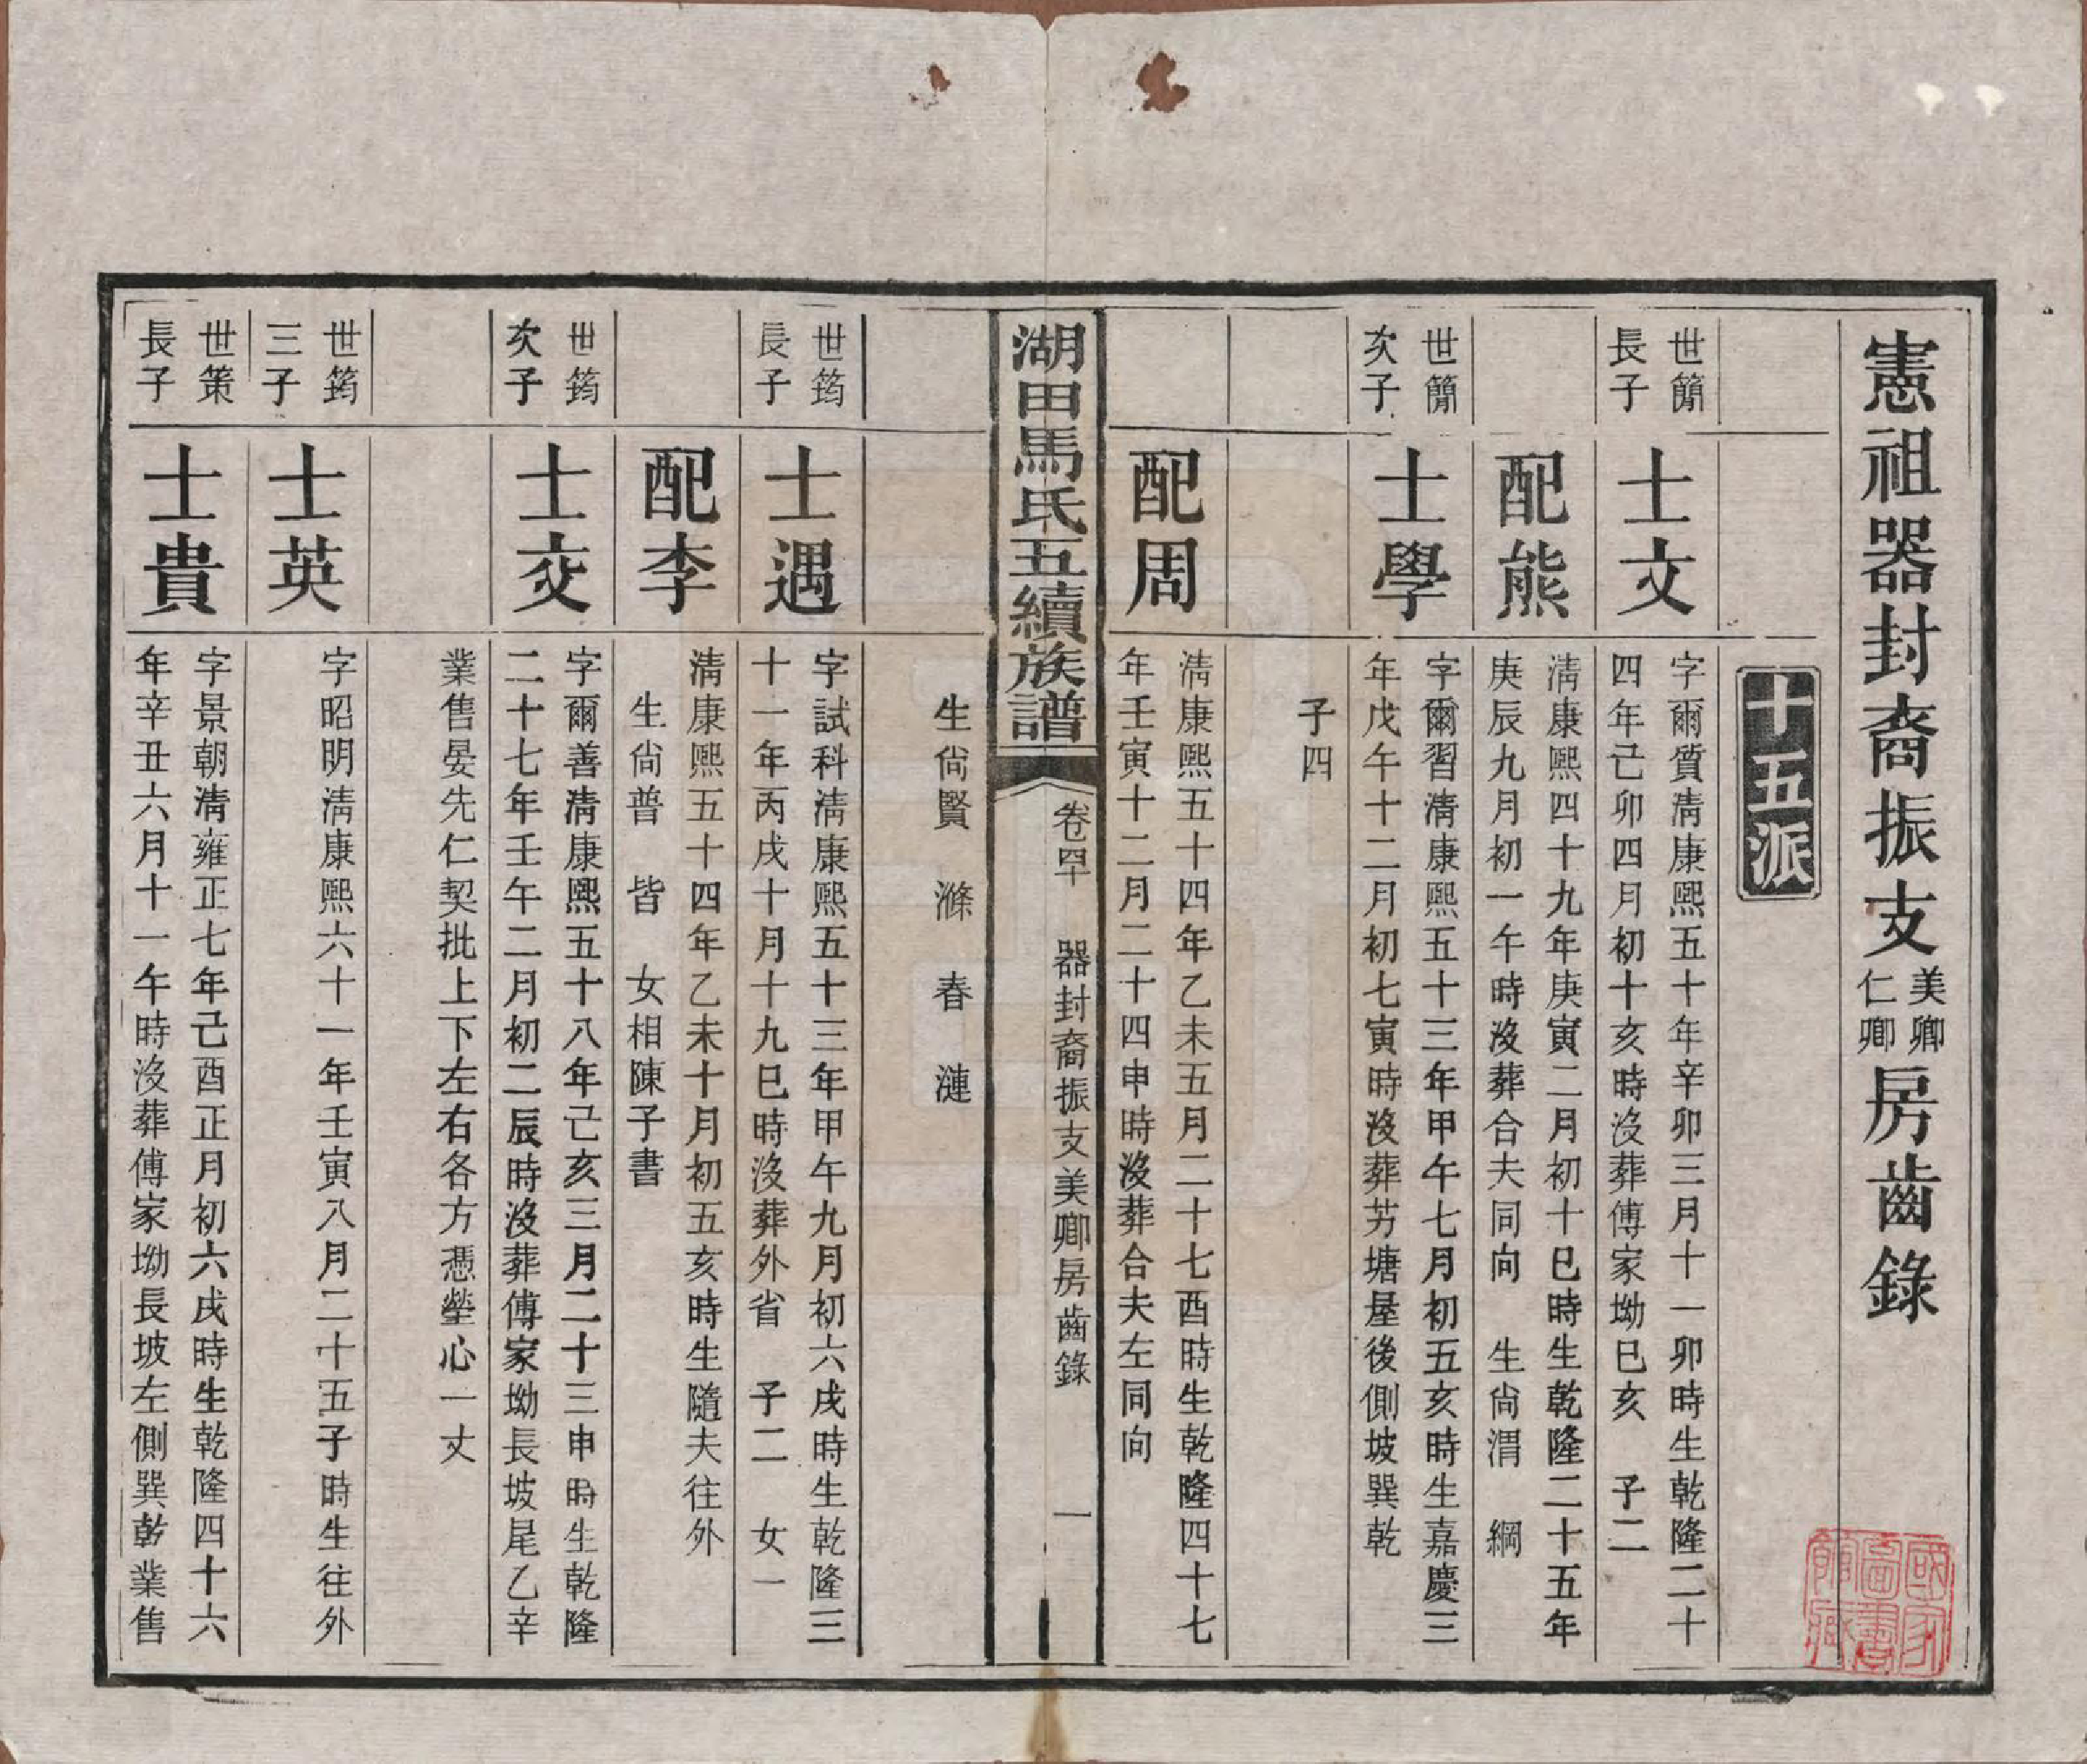 憲祖器封裔振支美卿仁卿房齒錄
十五派
世簡長子
士文
字爾質清康熙五十年辛卯三月十一卯時生乾隆二十
四年己卯四月初十亥時沒葬傅家坳巳亥 子二
配熊
清康熙四十九年庚寅二月初十巳時生乾隆二十五年
庚辰九月初一午時沒葬合夫同向 生尙渭 綱
世簡次子
士學
字爾習清康熙五十三年甲午七月初五亥時生嘉慶三
年戊午十二月初七寅時沒葬芳塘屋後側坡巽乾
子四
配周
清康熙五十四年乙未五月二十七酉時生乾隆四十七
年壬寅十二月二十四申時沒葬合夫左同向
湖田馬氏五續族譜
卷四十 器封裔振支美卿房齒錄 一
生尙賢 滌 春 漣
世筠長子
士遇
字試科清康熙五十三年甲午九月初六戌時生乾隆三
十一年丙戌十月十九巳時沒葬外省 子二 女一
配李
清康熙五十四年乙未十月初五亥時生隨夫往外
生尙普 皆 女相陳子書
世筠次子
士交
字爾善清康熙五十八年己亥三月二十三申時生乾隆
二十七年壬午二月初二辰時沒葬傅家坳長坡尾乙辛
業售晏先仁契批上下左右各方憑塋心一丈
世筠三子
士英
字昭明清康熙六十一年壬寅八月二十五子時生往外
世策長子
士貴
字景朝清雍正七年己酉正月初六戌時生乾隆四十六
年辛丑六月十一午時沒葬傅家坳長坡左側巽乾業售
國家圖書館藏